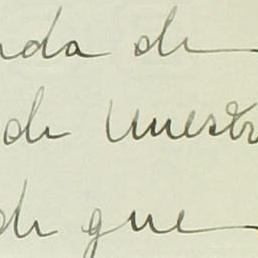 nda de
de Nuestr
de que